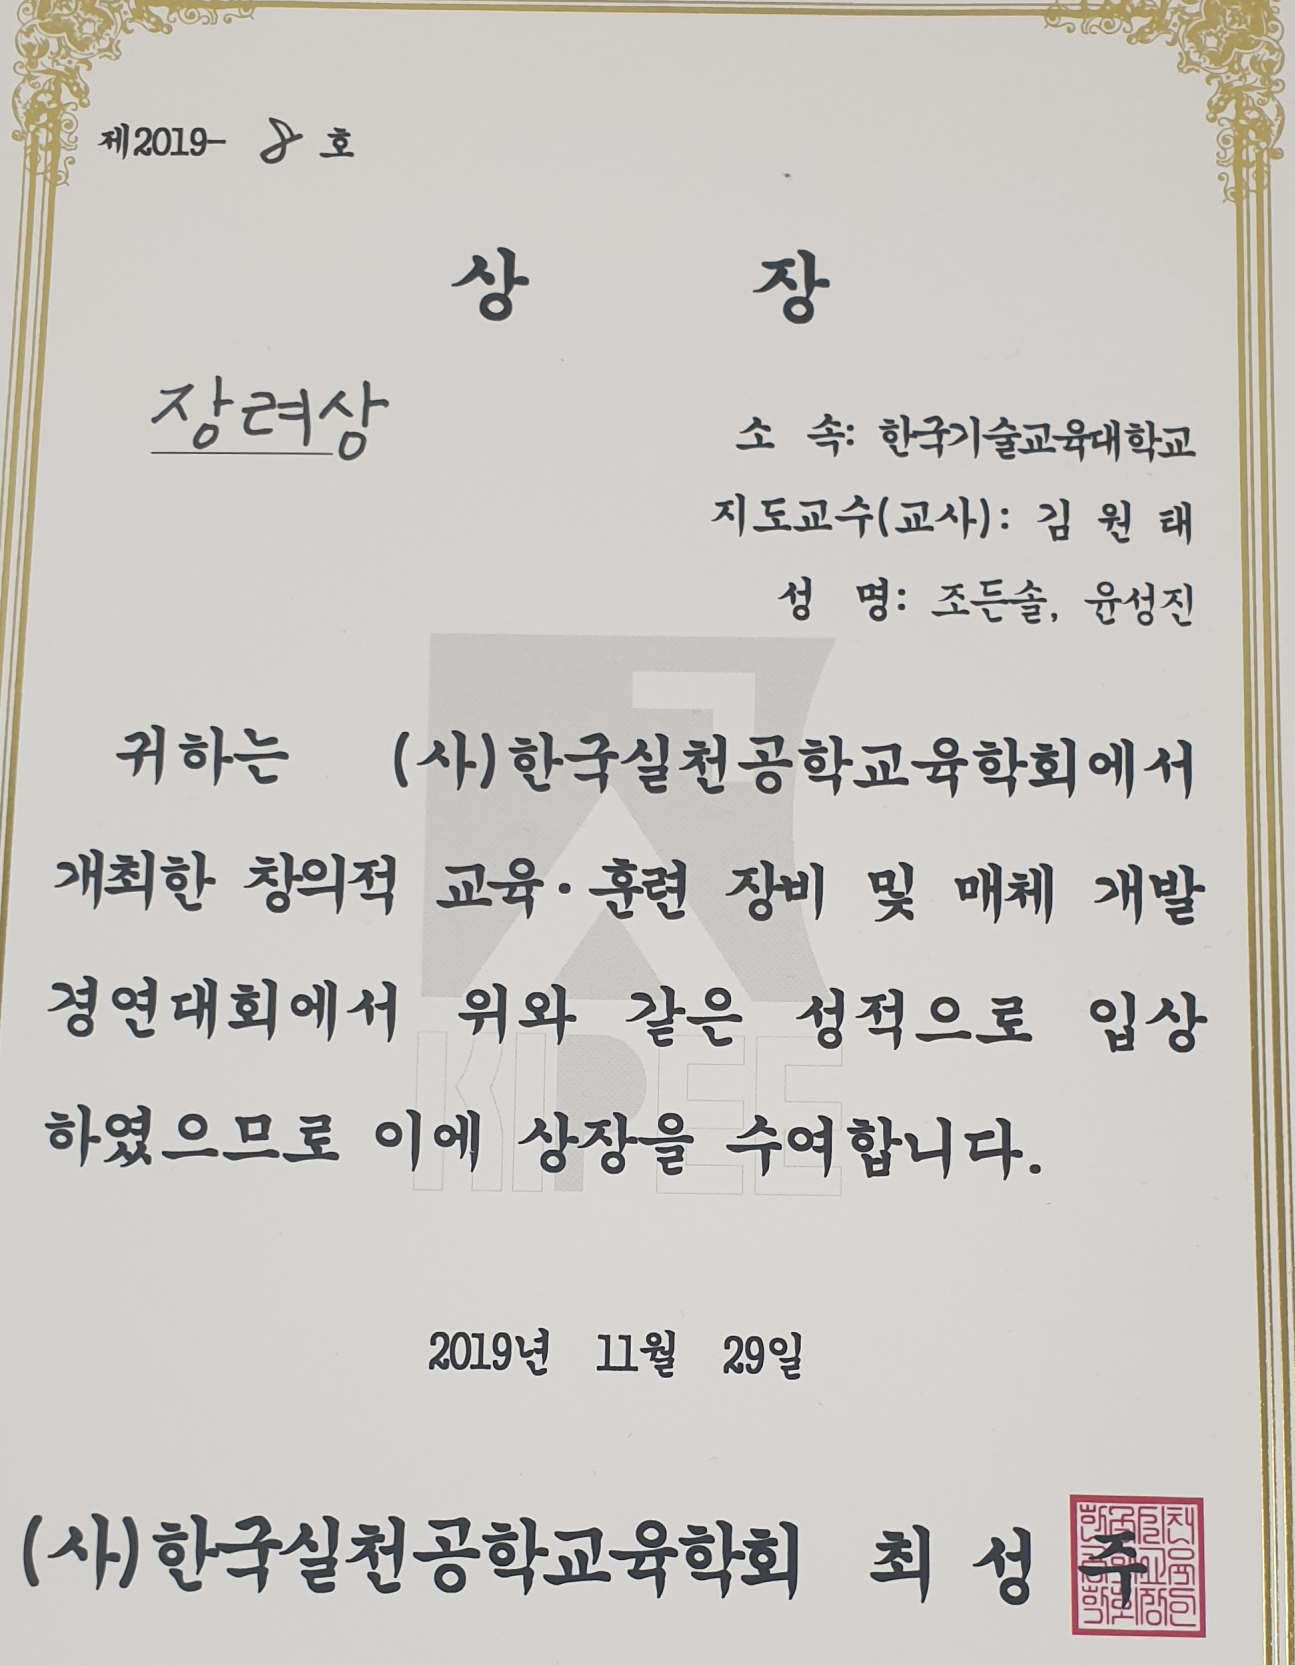 제2019- 8 호
상 장
장려상
소 속: 한국기술교육대학교
지도교수(교사): 김 원 태
성 명: 조든솔, 윤성진
귀하는 (사)한국실천공학교육학회에서
개최한 창의적 교육·훈련 장비 및 매체 개발
경연대회에서 위와 같은 성적으로 입상
하였으므로 이에 상장을 수여합니다.
KIPEE
2019년 11월 29일
(사)한국실천공학교육학회 최 성 주